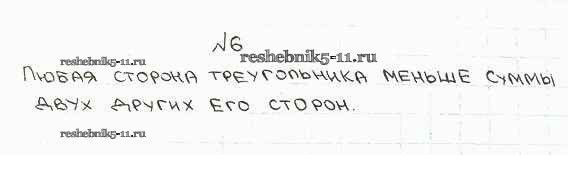 №6
reshebnik5-11.ru
reshebnik5-11.ru
ЛЮБАЯ СТОРОНА ТРЕУГОЛЬНИКА МЕНЬШЕ СУММЫ
ДВУХ ДРУГИХ ЕГО СТОРОН.
reshebnik5-11.ru